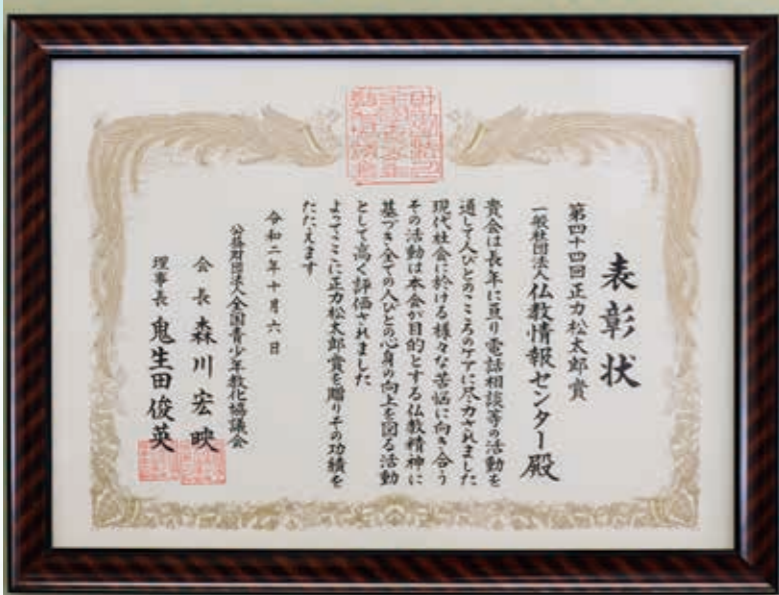 表彰状
第四十四回正力松太郎賞
一般社団法人仏教情報センター殿
貴会は長年に亘り電話相談等の活動を
通して人びとのこころのケアに尽力されました
現代社会に於ける様々な苦悩に向き合う
その活動は本会が目的とする仏教精神に
基づき全ての人びとの心身の向上を図る活動
として高く評価されました
よってここに正力松太郎賞を贈りその功績を
たたえます
令和二年十月六日
公益財団法人全国青少年教化協議会
会長 森川宏映
理事長 鬼生田俊英